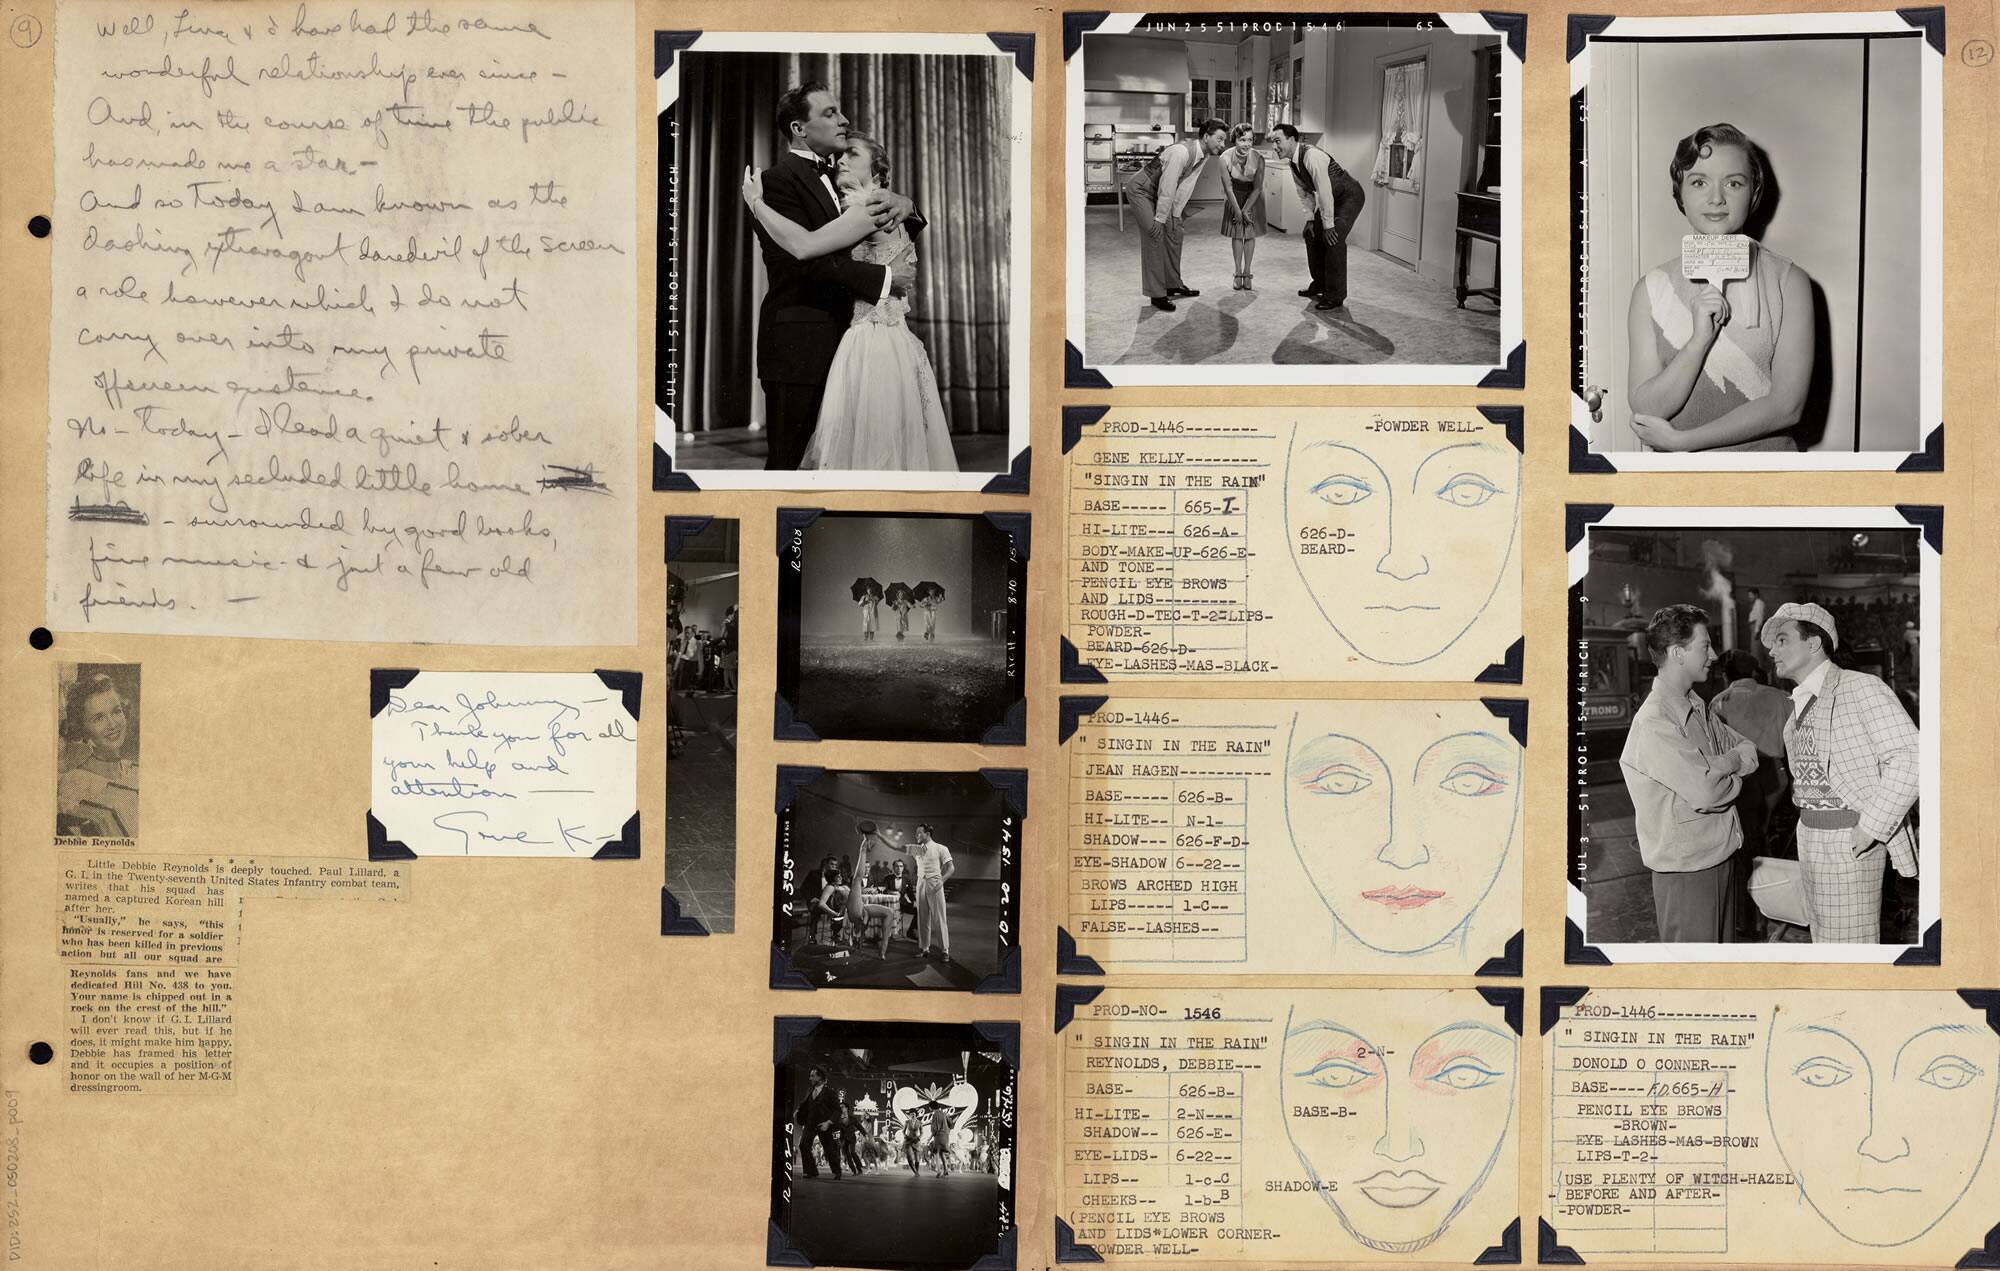 9
Well, Lina & I have had the same
wonderful relationship ever since –
And, in the course of time the public
has made me a star. –
And so Today I am known as the
dashing extravagant daredevil of the screen
a role however which I do not
carry over into my private
offscreen existence.
No – Today – I lead a quiet & sober
life in my secluded little home
– surrounded by good books,
fine music – & just a few old
friends. –
Debbie Reynolds
* * *
Little Debbie Reynolds is deeply touched. Paul Lillard, a
G. I. in the Twenty-seventh United States Infantry combat team,
writes that his squad has
named a captured Korean hill
after her.
"Usually," he says, "this
honor is reserved for a soldier
who has been killed in previous
action but all our squad are
Reynolds fans and we have
dedicated Hill No. 438 to you.
Your name is chipped out in a
rock on the crest of the hill."
I don't know if G. I. Lillard
will ever read this, but if he
does, it might make him happy.
Debbie has framed his letter
and it occupies a position of
honor on the wall of her M-G-M
dressingroom.
Dear Johnny –
Thank you for all
your help and
attention –
Gene K–
DID:252_050208_p009
JUL 31 51 PROD 1546 RICH 47
R 308
RICH. 8-10 15
R 355
10-20 1546
R 102 B
1546
JUN 25 51 PROD 1546 65
PROD-1446--------
GENE KELLY--------
"SINGIN IN THE RAIN"
BASE----- 665-I-
HI-LITE--- 626-A-
BODY-MAKE-UP-626-E-
AND TONE--
PENCIL EYE BROWS
AND LIDS----------
ROUGH-D-TEC-T-2-LIPS-
POWDER-
BEARD-626-D-
EYE-LASHES-MAS-BLACK-
-POWDER WELL-
626-D-
BEARD-
PROD-1446-
" SINGIN IN THE RAIN"
JEAN HAGEN-----------
BASE----- 626-B-
HI-LITE-- N-1-
SHADOW--- 626-F-D-
EYE-SHADOW 6--22--
BROWS ARCHED HIGH
LIPS----- 1-C--
FALSE--LASHES--
PROD-NO- 1546
" SINGIN IN THE RAIN"
REYNOLDS, DEBBIE---
BASE- 626-B-
HI-LITE- 2-N---
SHADOW-- 626-E-
EYE-LIDS- 6-22--
LIPS-- 1-c-C
CHEEKS-- 1-b-B
(PENCIL EYE BROWS
AND LIDS*LOWER CORNER-
POWDER WELL-
2-N-
BASE-B-
SHADOW-E
12
MAKEUP DEPT.
JUL 3 51 PROD 1546 RICH 9
STRONG
PROD-1446------------
" SINGIN IN THE RAIN"
DONOLD O CONNER---
BASE---- F.D. 665-H-
PENCIL EYE BROWS
-BROWN-
EYE LASHES-MAS-BROWN
LIPS-T-2-
(USE PLENTY OF WITCH-HAZEL)
-BEFORE AND AFTER-
-POWDER-